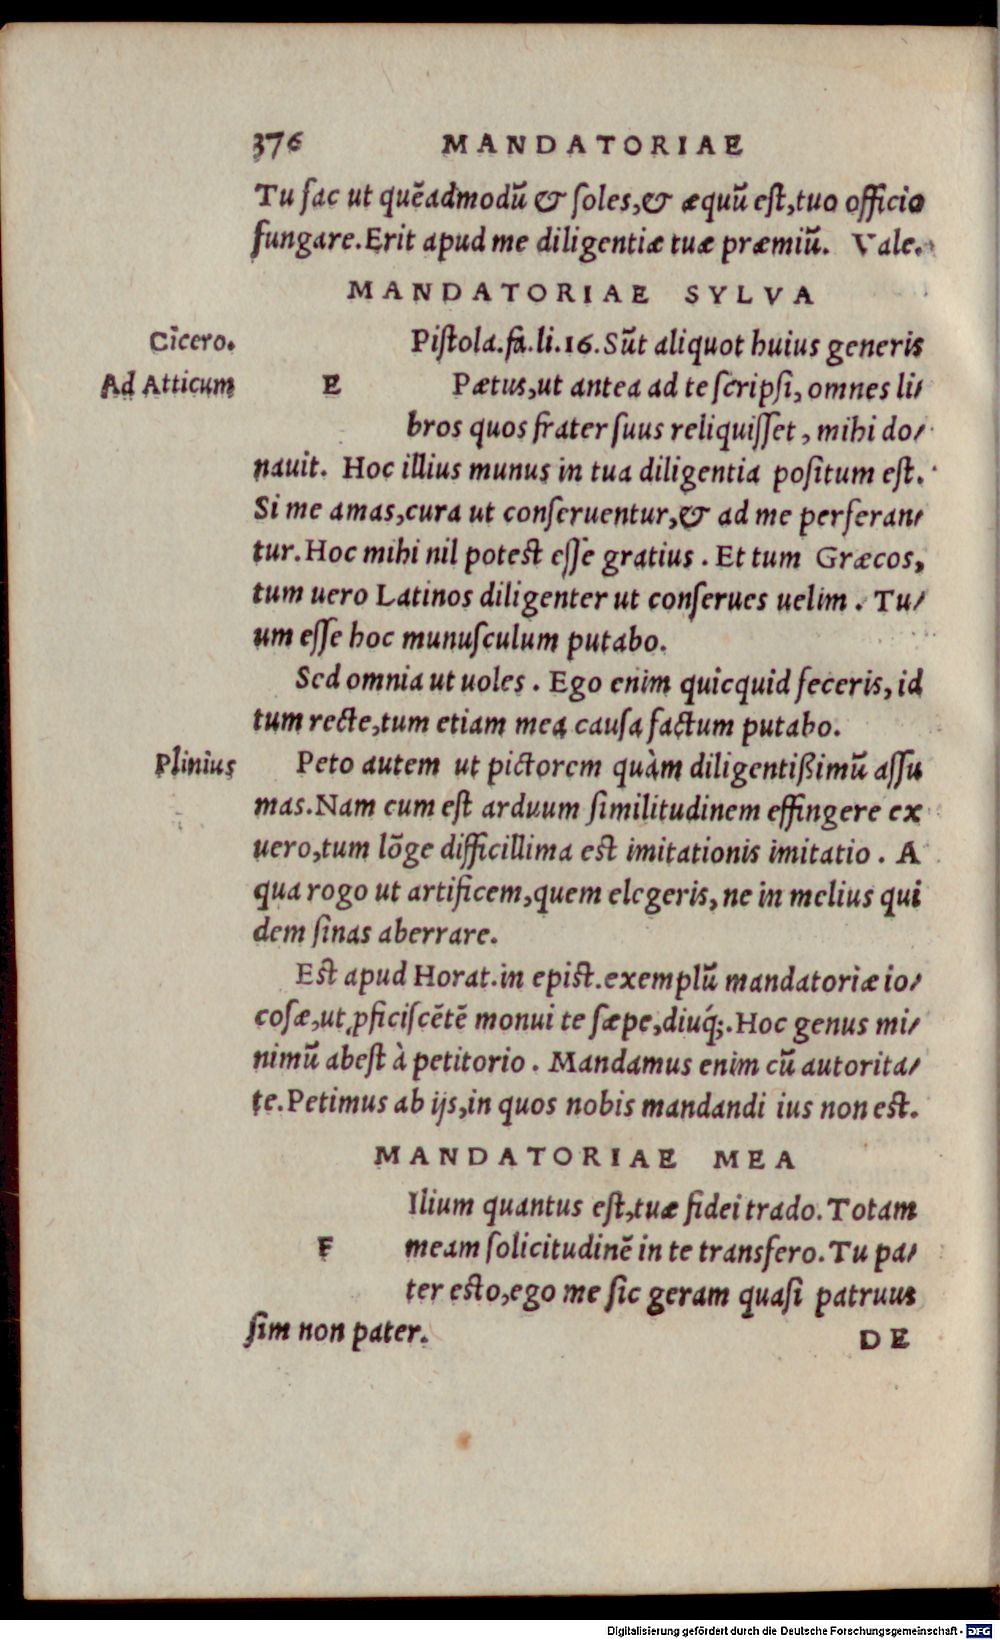 376 MANDATORIAE
Tu fac ut quẽadmodũ & ſoles,& æquũ eſt,tuo officio
fungare.Erit apud me diligentiæ tuæ præmiũ. Vale.
MANDATORIAE SYLVA
Cicero. Piſtola.fa.li.16.Sũt aliquot huius generis
Ad Atticum E Pætus,ut antea ad te ſcripſi, omnes li-
bros quos frater ſuus reliquiſſet, mihi do-
nauit. Hoc illius munus in tua diligentia poſitum eſt.
Si me amas,cura ut conſeruentur,& ad me perferan-
tur.Hoc mihi nil poteſt eſſe gratius. Et tum Græcos,
tum uero Latinos diligenter ut conſerues uelim. Tu-
um eſſe hoc munuſculum putabo.
Sed omnia ut uoles. Ego enim quicquid feceris, id
tum recte,tum etiam mea cauſa factum putabo.
Plinius Peto autem ut pictorem quàm diligentißimũ aſſu
mas.Nam cum eſt arduum ſimilitudinem effingere ex
uero,tum lõge difficillima eſt imitationis imitatio. A
qua rogo ut artificem,quem elegeris, ne in melius qui
dem ſinas aberrare.
Eſt apud Horat.in epiſt.exemplũ mandatoriæ io-
coſæ,ut ꝓficiſcẽtẽ monui te ſæpe,diuq́;.Hoc genus mi-
nimũ abeſt à petitorio. Mandamus enim cũ autorita-
te.Petimus ab ijs,in quos nobis mandandi ius non eſt.
MANDATORIAE MEA
Ilium quantus eſt,tuæ fidei trado.Totam
F meam ſolicitudinẽ in te transfero.Tu pa-
ter eſto,ego me ſic geram quaſi patruus
ſim non pater.
DE
Digitalisierung gefördert durch die Deutsche Forschungsgemeinschaft - DFG